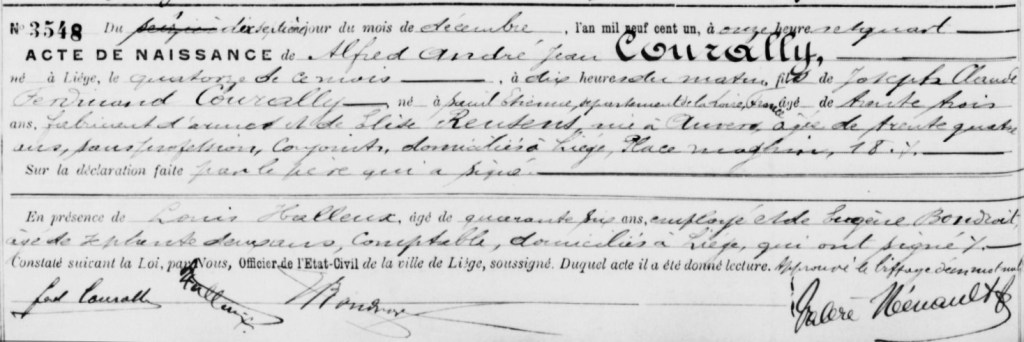 No 3548 Du dix septième jour du mois de décembre, l'an mil neuf cent un, à onze heures et quart
ACTE DE NAISSANCE de Alfred André Jean Courally,
né à Liége, le quatorze de ce mois, à dix heures du matin, fils de Joseph Claude
Ferdinand Courally né à Saint Etienne, département de la Loire, France âgé de trente trois
ans, fabricant d'armes et de Elise Reusens, née à Anvers, âgée de trente quatre
ans, sans profession, conjoints, domiciliés à Liége, Place Maghin, 18./.
Sur la déclaration faite par le père qui a signé.
En présence de Louis Halleux, âgé de quarante six ans, employé et de Eugène Bondroit,
âgé de septante deux ans, comptable, domiciliés à Liége, qui ont signé /.
Constaté suivant la Loi, par Nous, Officier de l'Etat-Civil de la ville de Liége, soussigné. Duquel acte il a été donné lecture. Approuvé le biffage d'un mot nul
Jos Courally Halleux Bondroit Valère Hénault